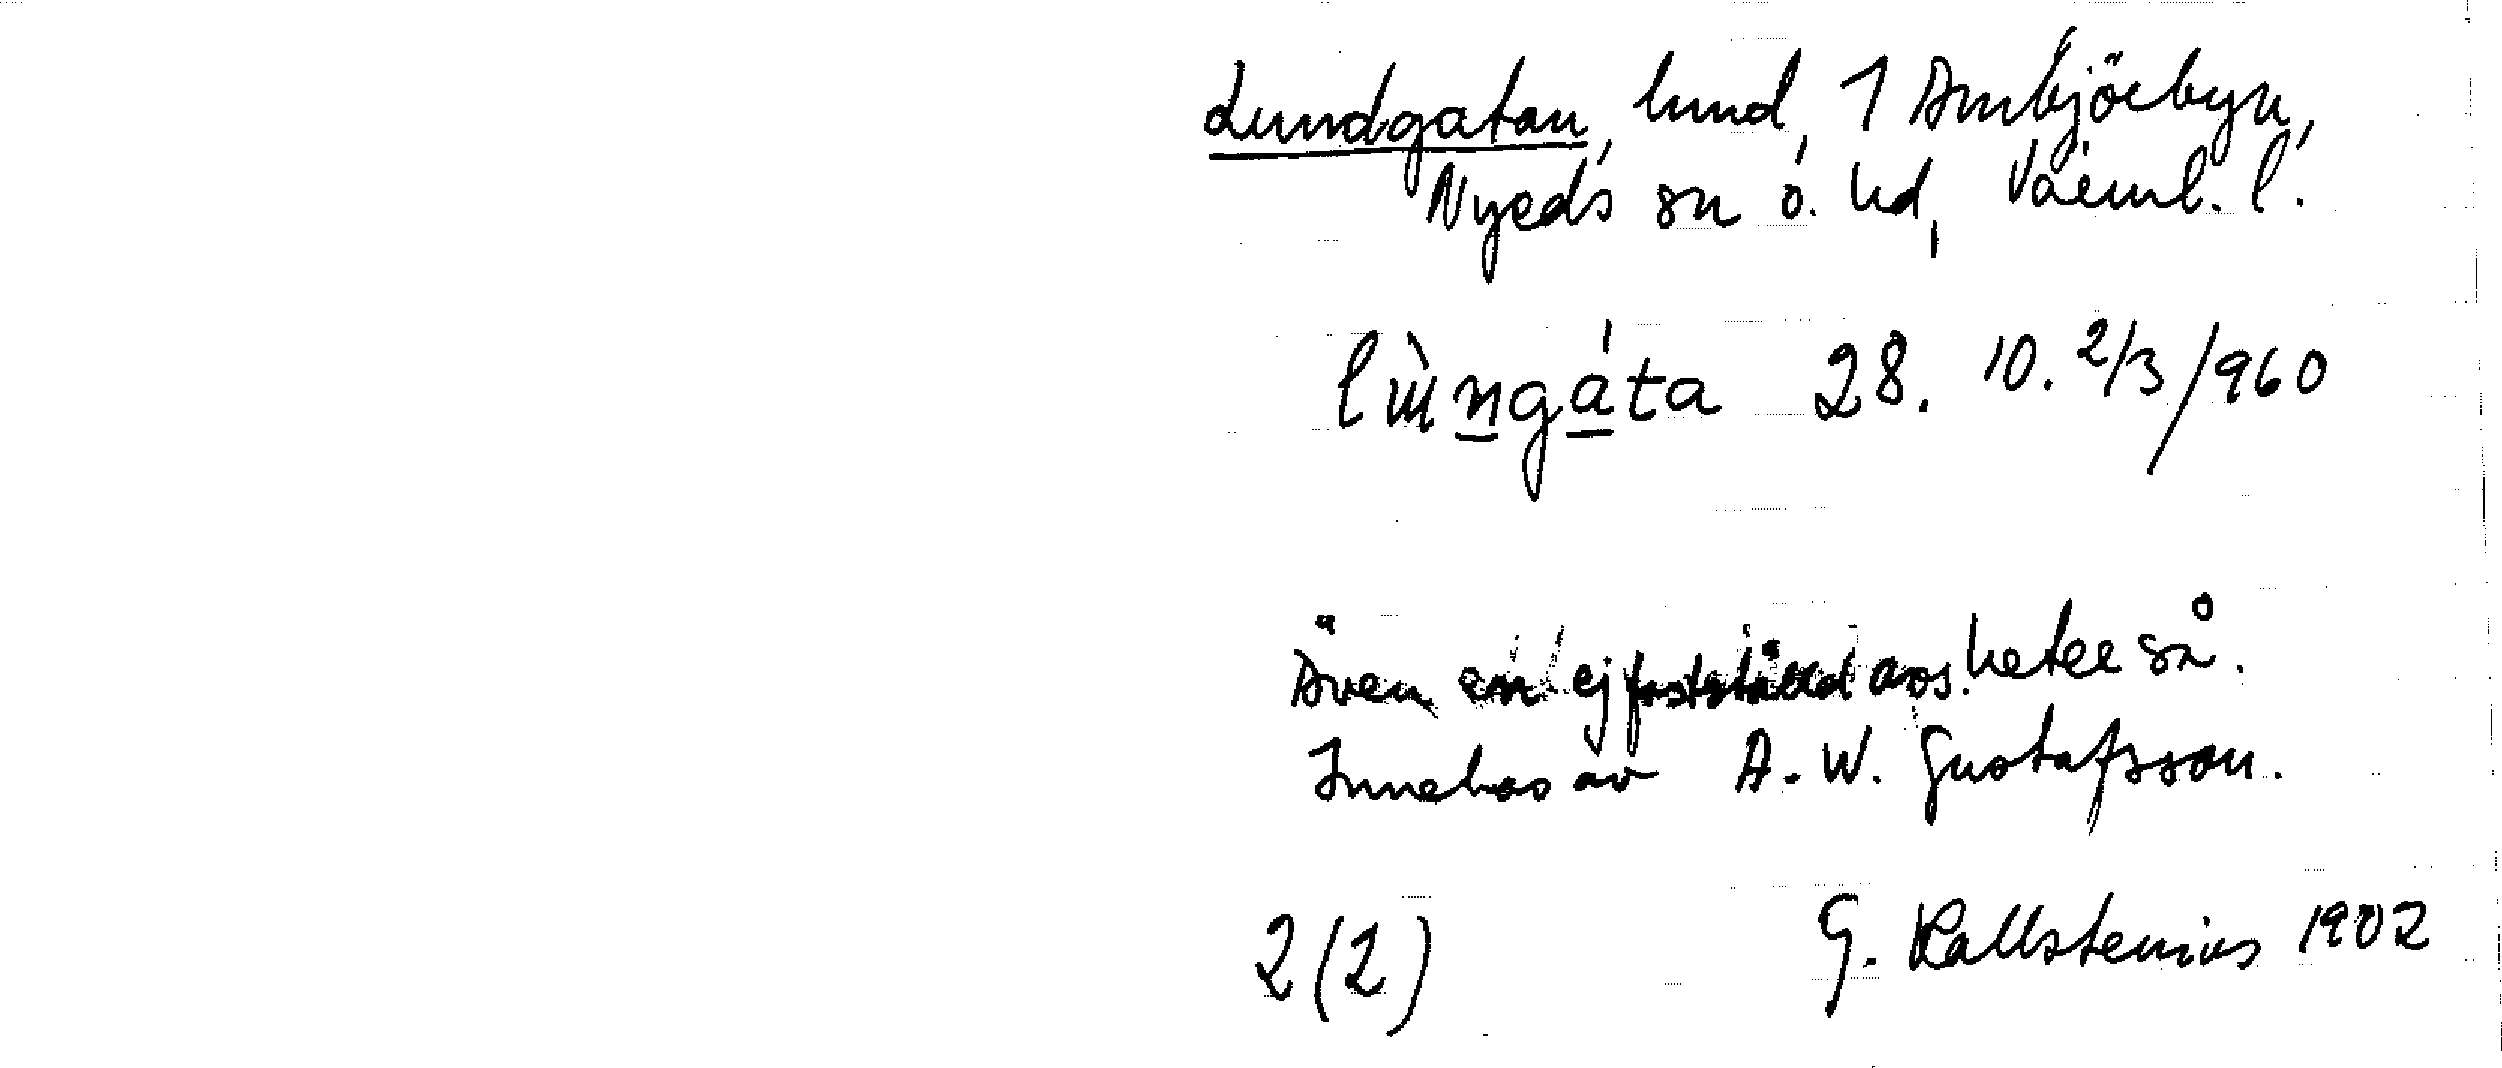 Lundgatan, lund, 1 Ambjörbyn,
Nyeds sn ö. hd, Värml. l.
lùngáta 28. 10. 2/3/960
Även en ej fastställd avs. heter så.
Innehas av A. W. Gustafsson.
2(2) G. Kallstenius 1902